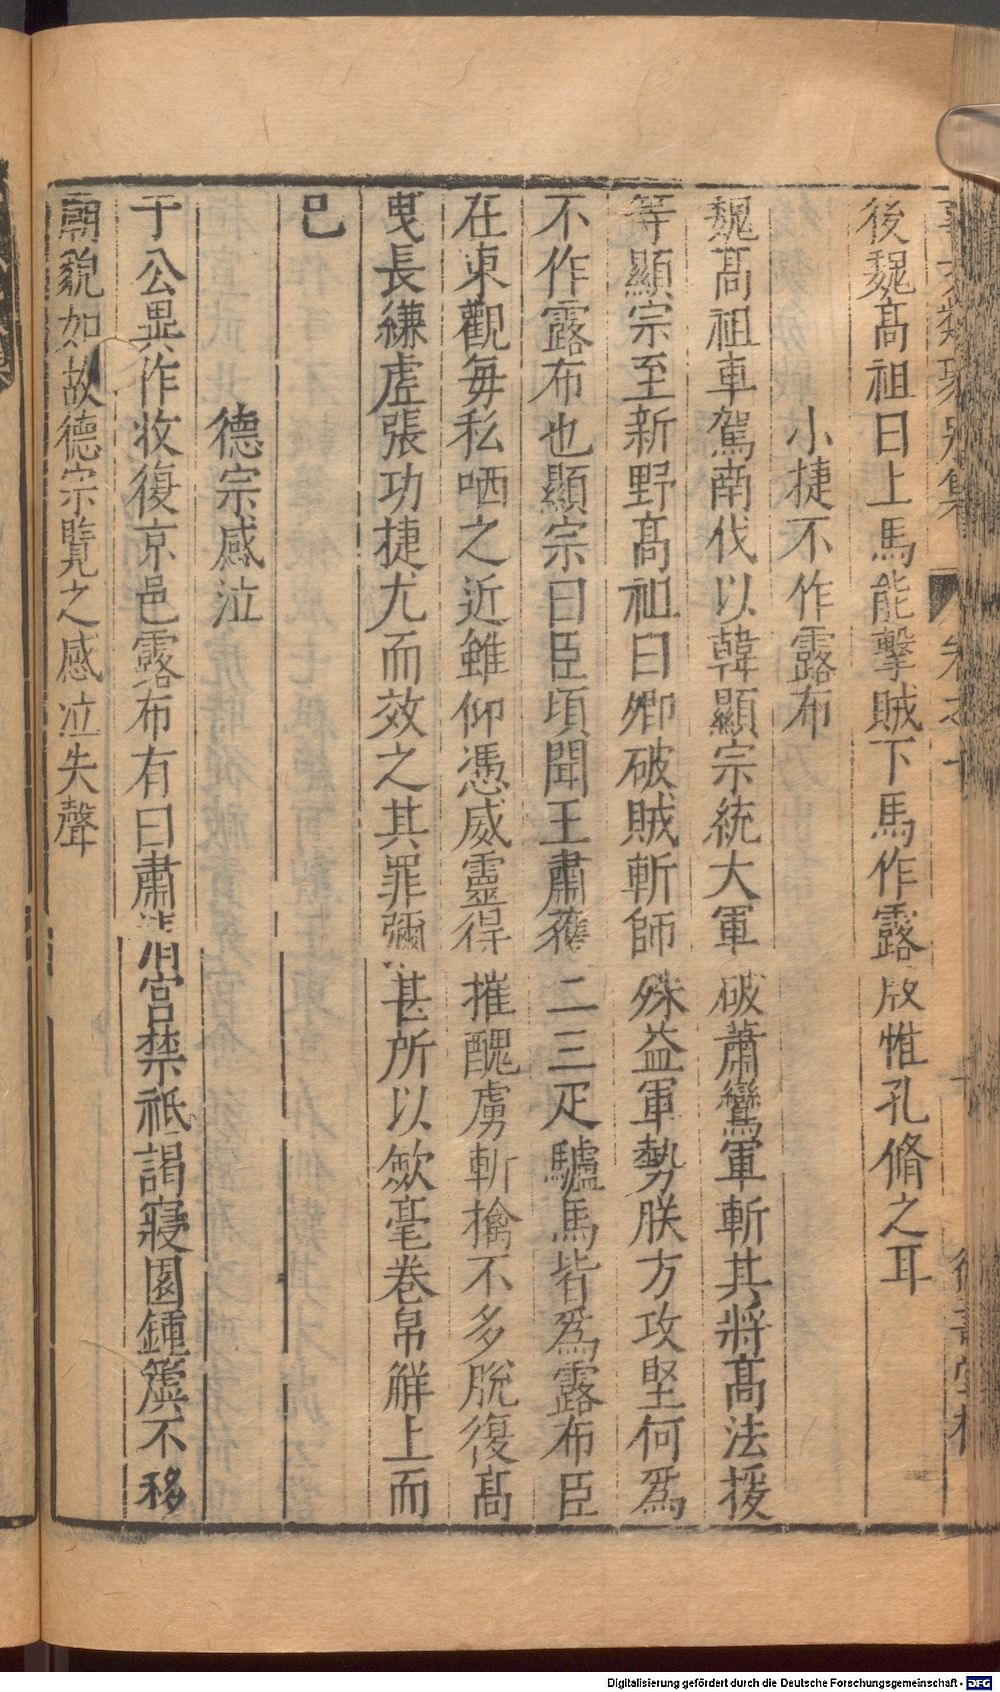 後魏髙祖曰上馬能擊賊下馬作露布惟孔脩之耳
小捷不作露布
魏髙祖車駕南伐以韓顯宗統大軍破蕭鸞軍斬其將髙法援
等顯宗至新野髙祖曰卿破賊斬師殊益軍勢朕方攻堅何爲
不作露布也顯宗曰臣頃聞王肅獲二三疋驢馬皆爲露布臣
在東觀毎私哂之近雖仰憑威靈得摧醜虜斬擒不多脫復髙
曳長縑虗張功捷尤而效之其罪彌甚所以歛毫卷帛觧上而
已
德宗感泣
于公異作收復京邑露布有曰肅清宮禁祇謁寢園鍾簴不移
廟貌如故德宗覽之感泣失聲
Digitalisierung gefördert durch die Deutsche Forschungsgemeinschaft - DFG